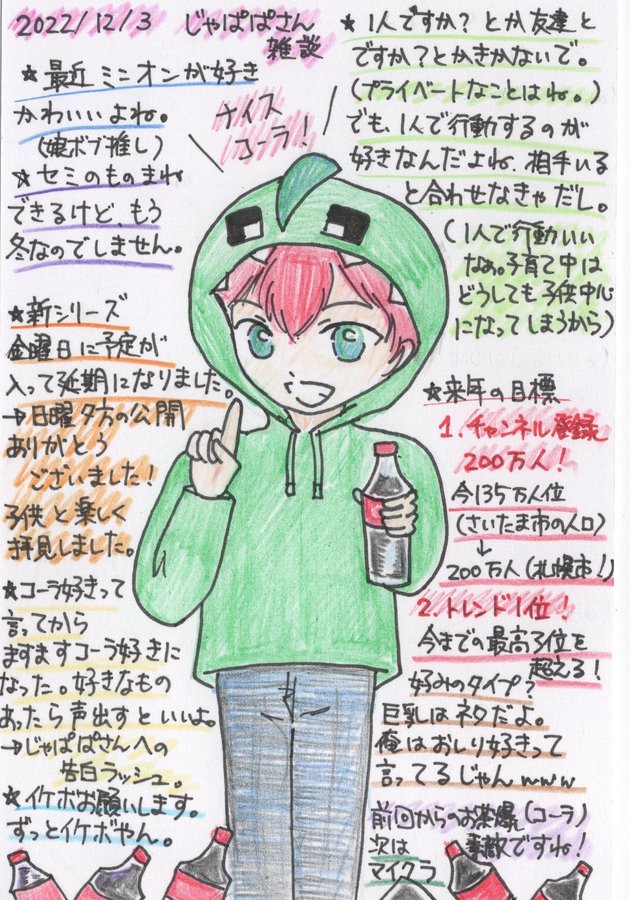 2022/12/3 じゃぱぱさん
雑談
☆最近ミニオンが好き
かわいいよね。
(娘ボブ推し)
☆セミのものまね
できるけど、もう
冬なのでしません。
ナイス
コーラ!
☆新シリーズ
金曜日に予定が
入って延期になりました。
→日曜夕方の公開
ありがとう
ございました!
子供と楽しく
拝見しました。
☆コーラ好きって
言ってから
ますますコーラ好きに
なった。好きなもの
あったら声出すといいよ。
→じゃぱぱさんへの
告白ラッシュ。
☆イケボお願いします。
ずっとイケボやん。
☆1人ですか?とか友達と
ですか?とかきかないで。
(プライベートなことはね。)
でも、1人で行動するのが
好きなんだよね、相手いる
と合わせなきゃだし。
(1人で行動いい
なぁ。子育て中は
どうしても子供中心
になってしまうから)
☆来年の目標
1.チャンネル登録
200万人!
今135万人位
(さいたま市の人口)
↓
200万人(札幌市!)
2.トレンド1位!
今までの最高3位を
超える!
好みのタイプ?
巨乳はネタだよ。
俺はおしり好きって
言ってるじゃんwww
前回からのお茶爆(コーラ)
素敵ですね!
次は
マイクラ